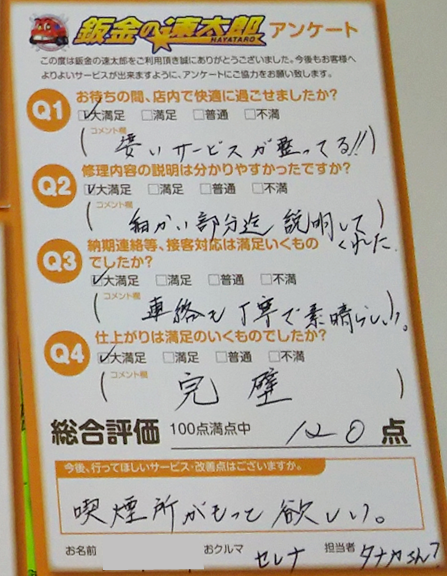 鈑金の速太郎 アンケート
HAYATARO
この度は鈑金の速太郎をご利用頂き誠にありがとうございました。今後もお客様へ
よりよいサービスが出来ますように、アンケートにご協力をお願い致します。
Q1 お待ちの間、店内で快適に過ごせましたか?
大満足 満足 普通 不満
コメント欄
(凄いサービスが整ってる!!)
Q2 修理内容の説明は分かりやすかったですか?
大満足 満足 普通 不満
コメント欄
(細かい部分迄 説明して
くれた.
Q3 納期連絡等、接客対応は満足いくもの
でしたか?
大満足 満足 普通 不満
コメント欄
(連絡も丁寧で素晴らしい。)
Q4 仕上がりは満足のいくものでしたか?
大満足 満足 普通 不満
コメント欄
(完璧)
総合評価 100点満点中 120 点
今後、行ってほしいサービス・改善点はございますか。
喫煙所がもっと欲しい。
お名前 おクルマ セレナ 担当者 タナカさん